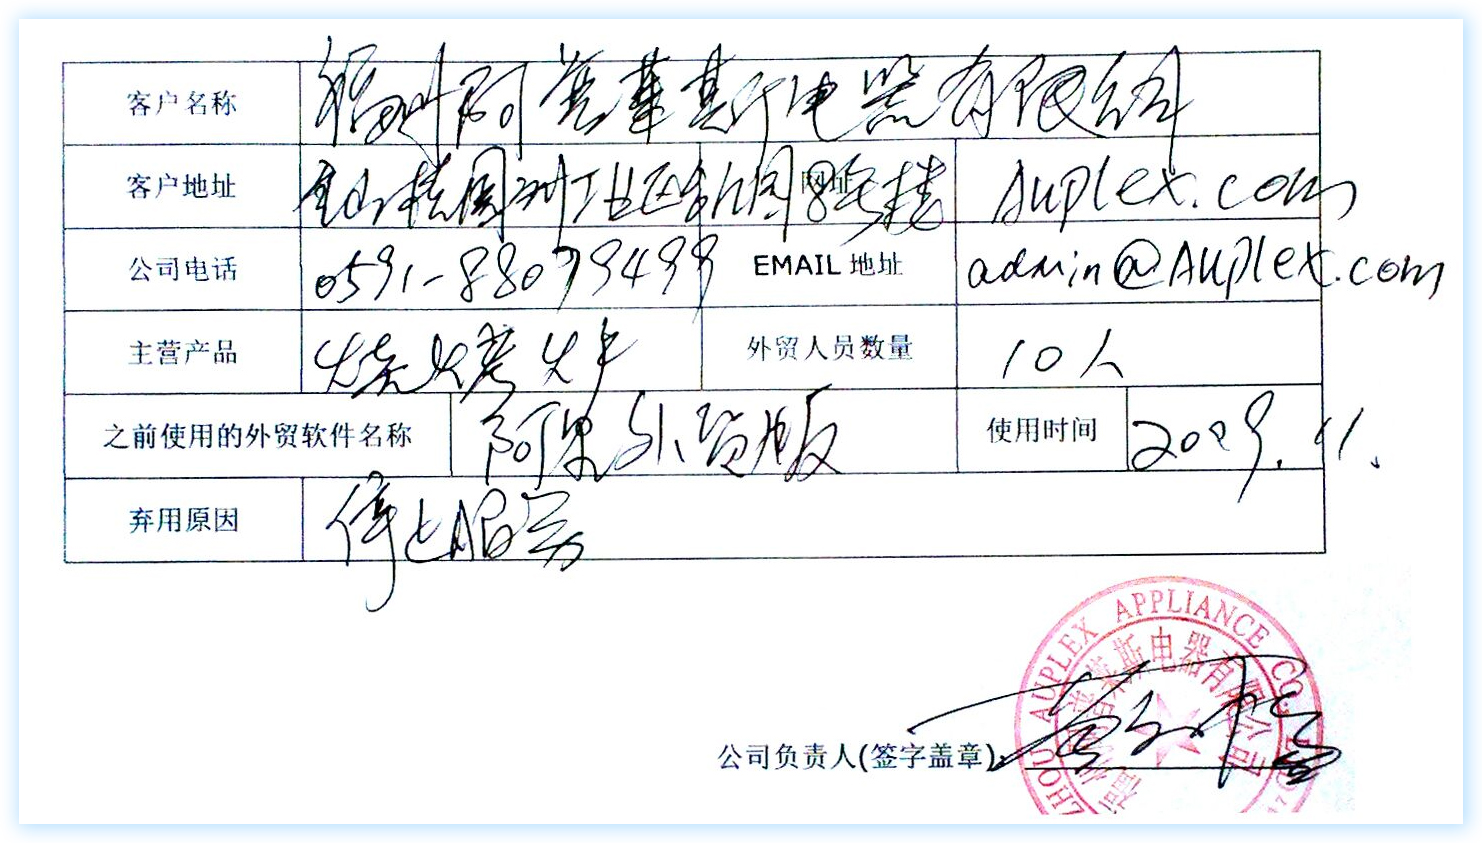 客户名称 福州阿普莱斯电器有限公司
客户地址 金山桔园洲工业区 网址 Auplex.com
公司电话 0591-88079499 EMAIL 地址 admin@Auplex.com
主营产品 烧烤炉 外贸人员数量 10人
之前使用的外贸软件名称 阿里外贸版 使用时间 2009.11.
弃用原因 停止服务
ZHOU AUPLEX APPLIANCE CO.
普莱斯电器有限公司
公司负责人(签字盖章)